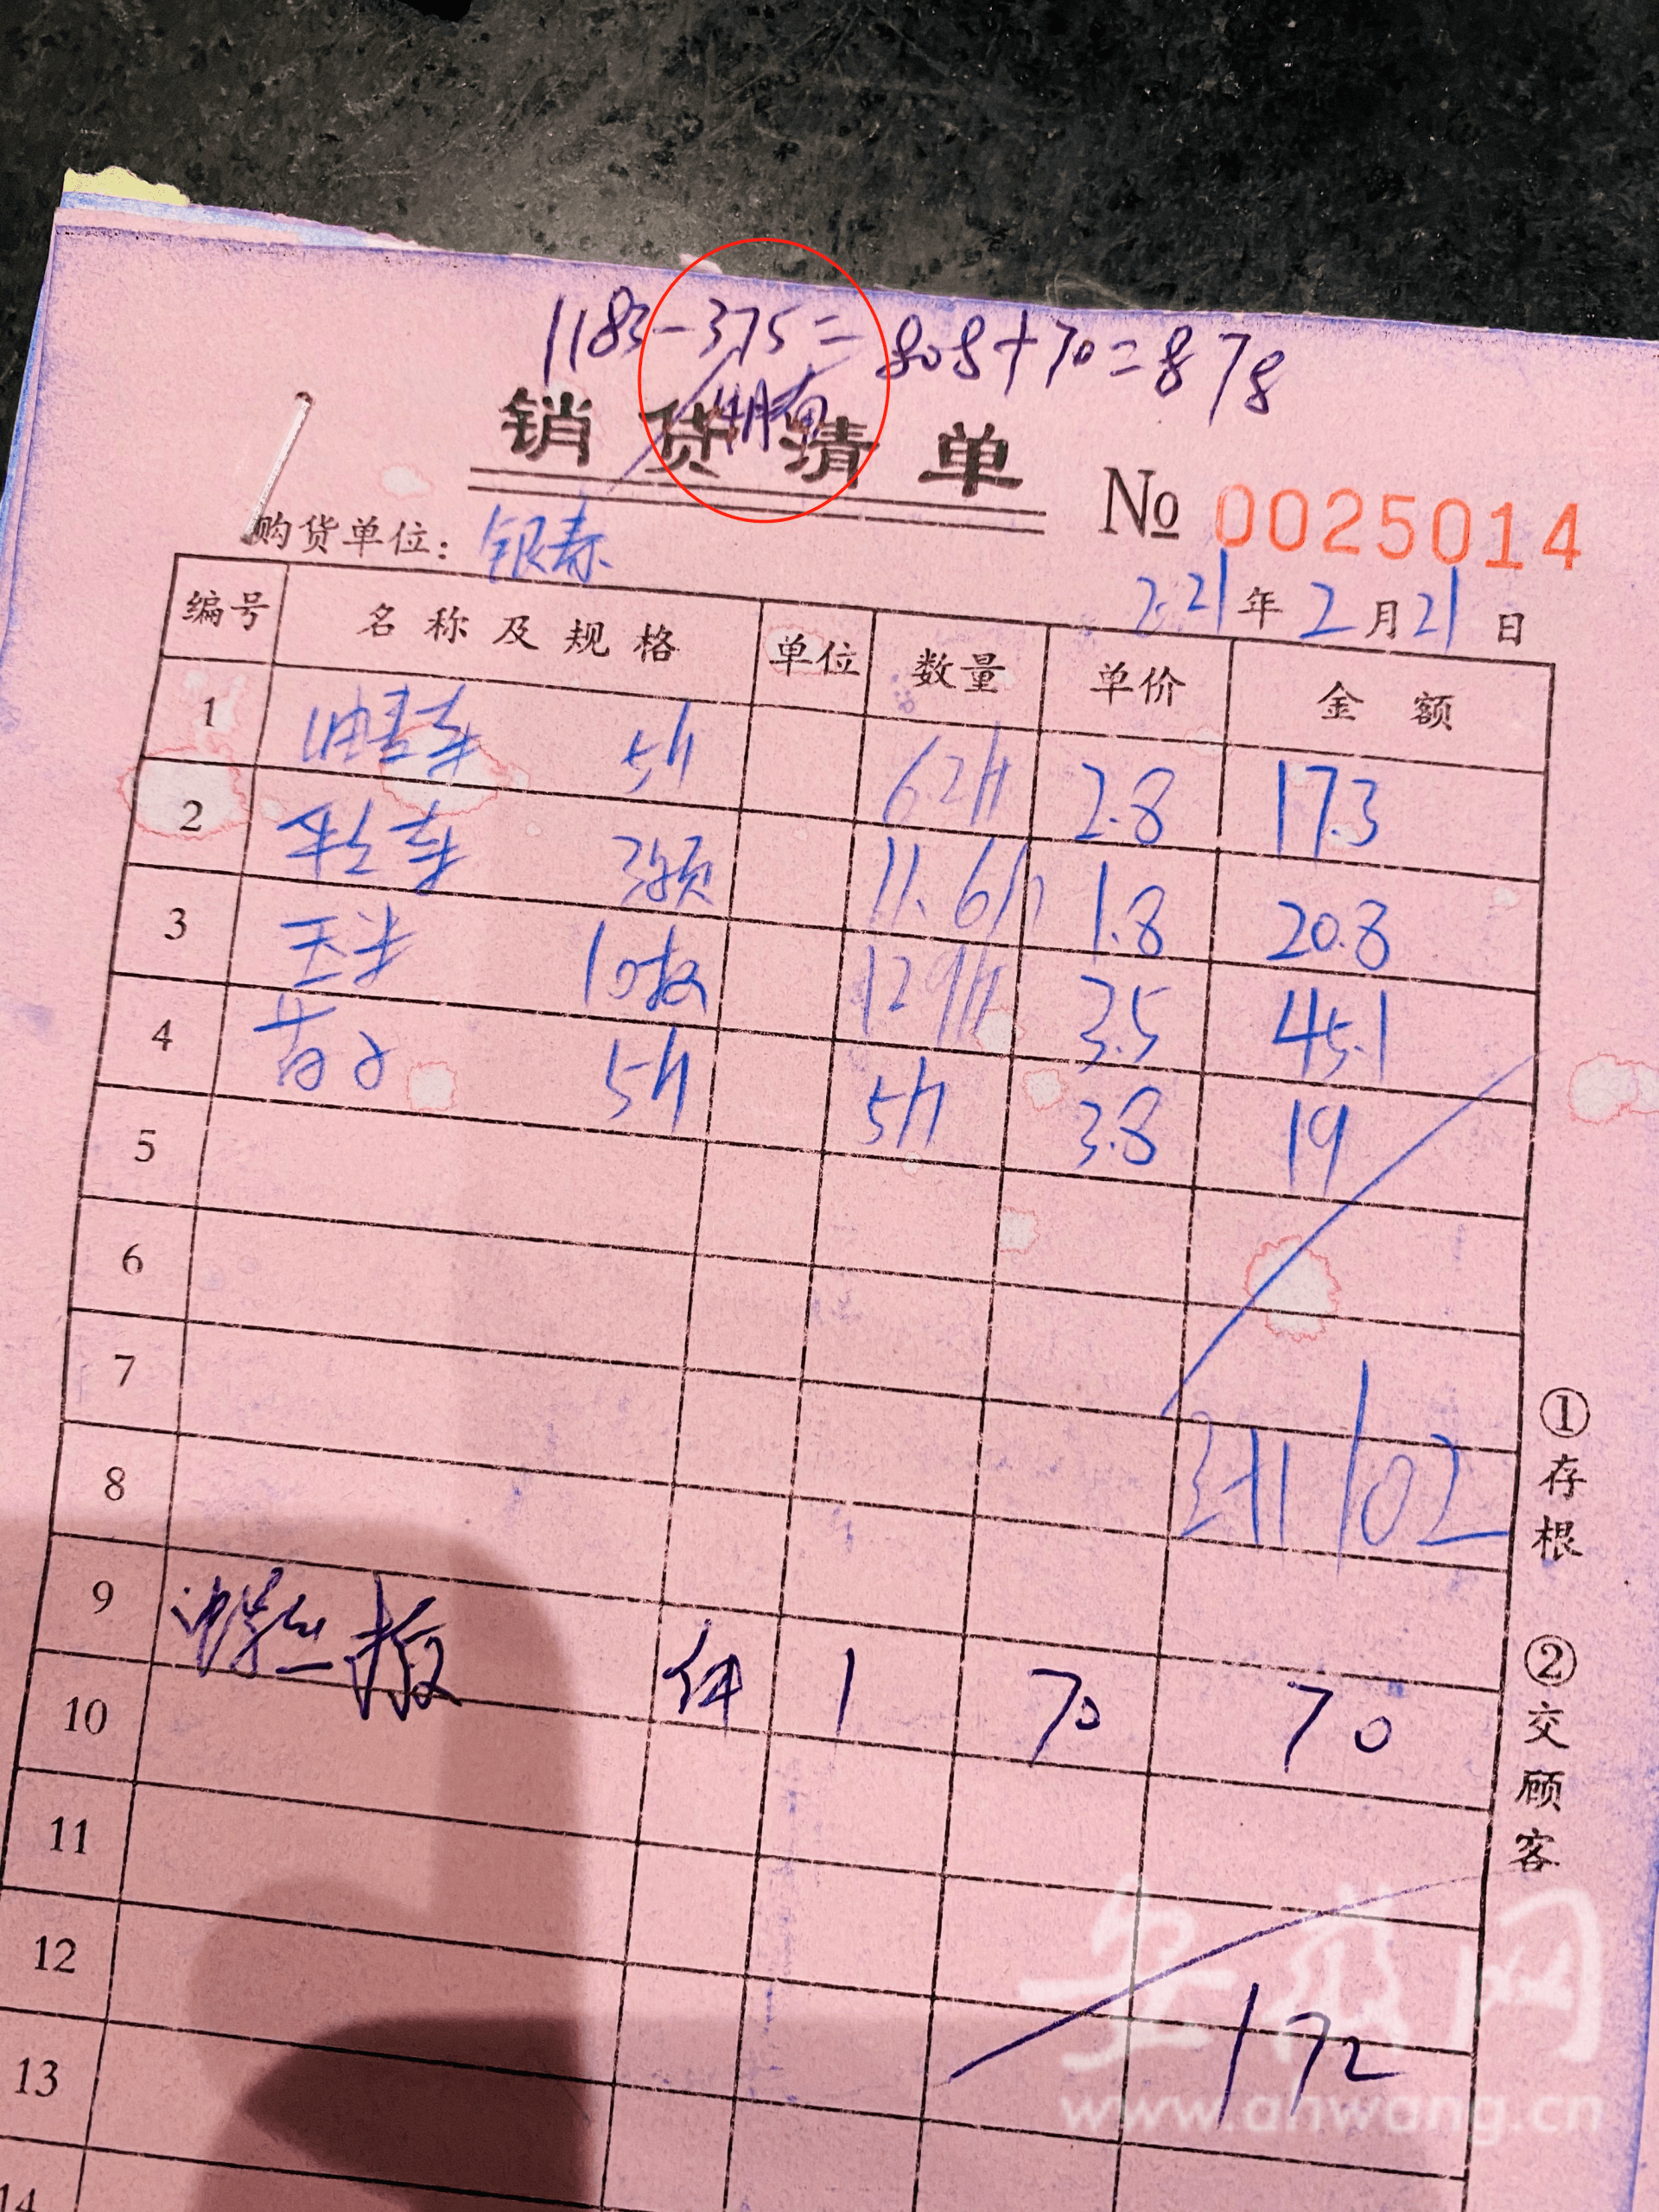 1183-375=808+70=878
销货清单 № 0025014
购货单位：银春
2.21年2月21日
编号 名称及规格 单位 数量 单价 金额
1 油麦菜 5斤 62斤 2.8 17.3
2 生菜 3颗 11.6斤 1.8 20.8
3 玉米 10枚 129斤 3.5 45.1
4 5斤 5斤 3.8 19
5
6
7
8 102
9
10 件 1 70 70
11
12
13 172
14
①存根 ②交顾客
安徽网
www.ahwang.cn